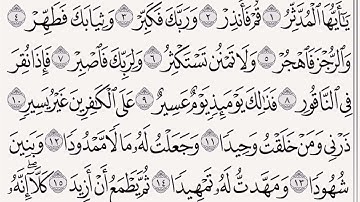 يَٰٓأَيُّهَا ٱلۡمُدَّثِّرُ ١ قُمۡ فَأَنذِرۡ ٢ وَرَبَّكَ فَكَبِّرۡ ٣ وَثِيَابَكَ فَطَهِّرۡ ٤
وَٱلرُّجۡزَ فَٱهۡجُرۡ ٥ وَلَا تَمۡنُن تَسۡتَكۡثِرُ ٦ وَلِرَبِّكَ فَٱصۡبِرۡ ٧ فَإِذَا نُقِرَ
فِي ٱلنَّاقُورِ ٨ فَذَٰلِكَ يَوۡمَئِذٖ يَوۡمٌ عَسِيرٌ ٩ عَلَى ٱلۡكَٰفِرِينَ غَيۡرُ يَسِيرٖ ١٠
ذَرۡنِي وَمَنۡ خَلَقۡتُ وَحِيدٗا ١١ وَجَعَلۡتُ لَهُۥ مَالٗا مَّمۡدُودٗا ١٢ وَبَنِينَ
شُهُودٗا ١٣ وَمَهَّدتُّ لَهُۥ تَمۡهِيدٗا ١٤ ثُمَّ يَطۡمَعُ أَنۡ أَزِيدَ ١٥ كَلَّآۖ إِنَّهُۥ